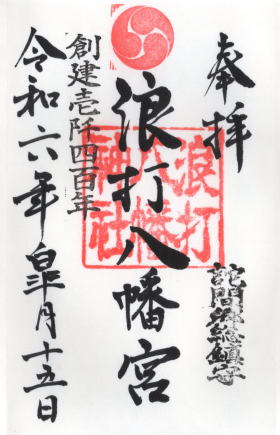 奉拝
詫間港総鎮守
浪打八幡宮
浪打八幡神社
創建壱阡四百年
令和六年皐月十五日